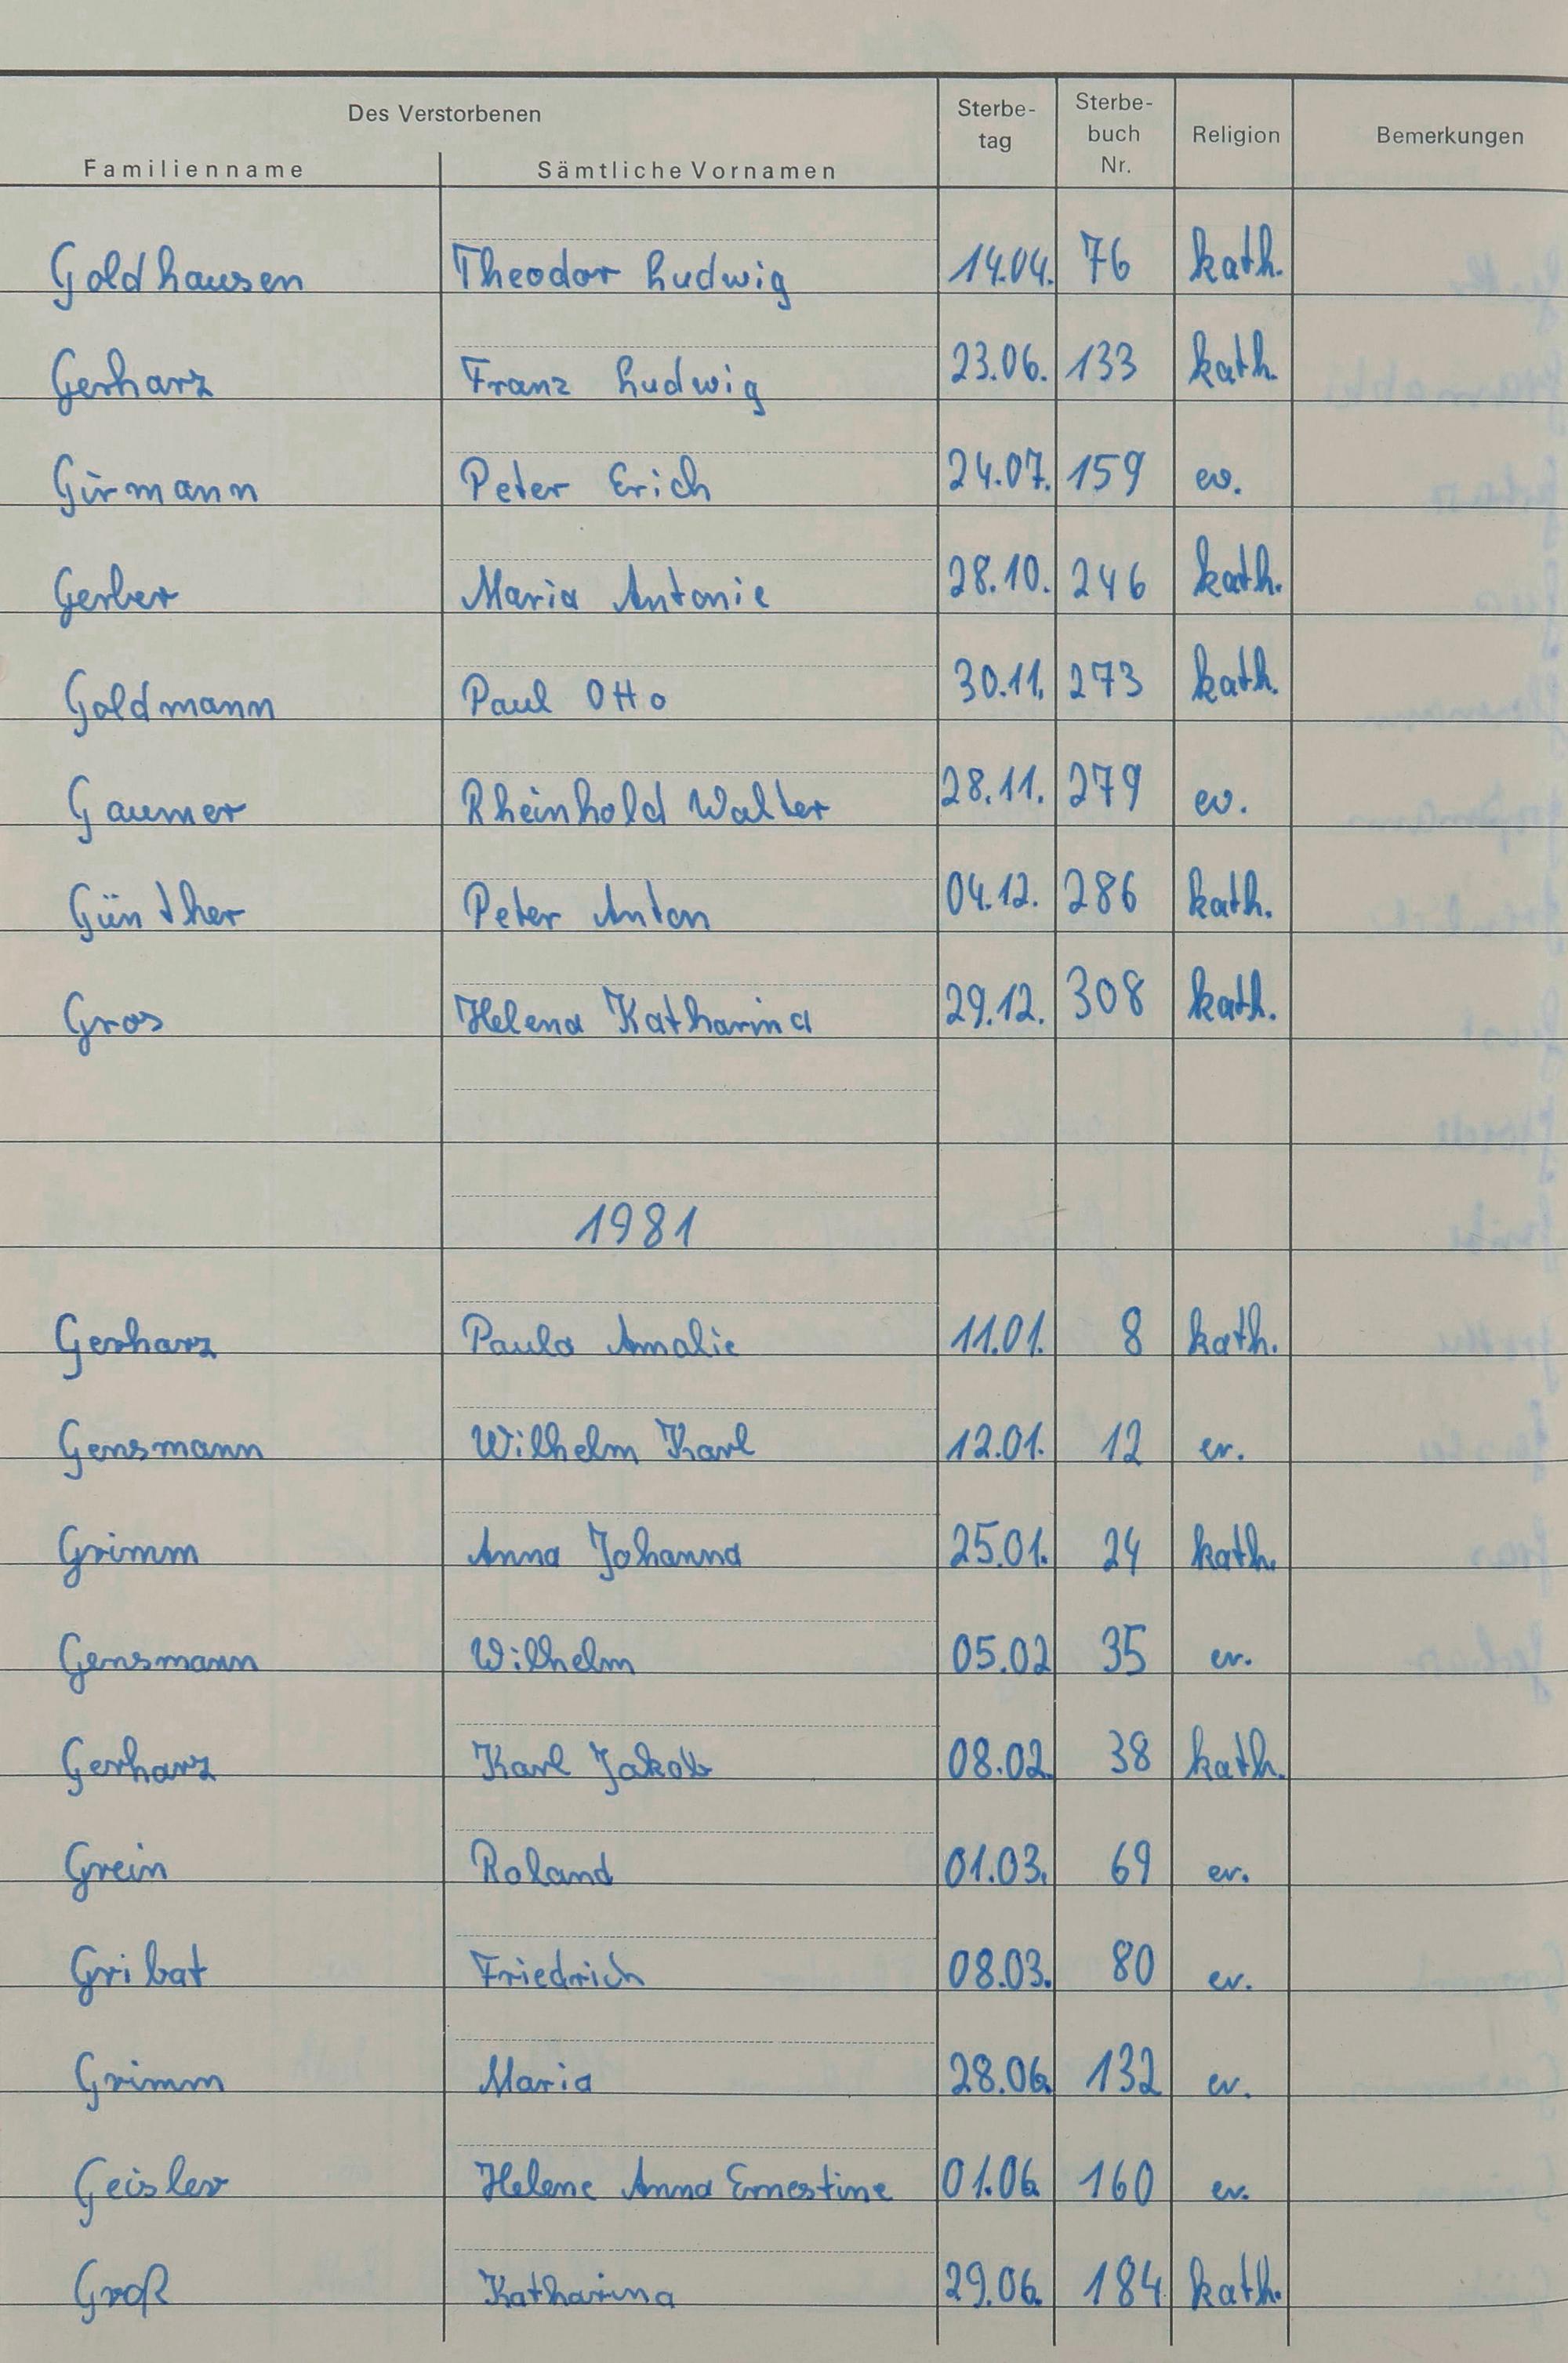 Des Verstorbenen
Familienname Sämtliche Vornamen Sterbe-tag Sterbe-buch Nr. Religion Bemerkungen
Goldhausen Theodor Ludwig 14.04. 76 kath.
Gerharz Franz Ludwig 23.06. 133 kath.
Girmann Peter Erich 24.07. 159 ev.
Gerber Maria Antonie 28.10. 246 kath.
Goldmann Paul Otto 30.11. 273 kath.
Gaumer Rheinhold Walter 28.11. 279 ev.
Günther Peter Anton 04.12. 286 kath.
Gros Helena Katharina 29.12. 308 kath.
1981
Gerharz Paula Amalie 11.01. 8 kath.
Gensmann Wilhelm Karl 12.01. 12 ev.
Grimm Anna Johanna 25.01. 24 kath.
Gensmann Wilhelm 05.02 35 ev.
Gerharz Karl Jakob 08.02. 38 kath.
Grein Roland 01.03. 69 ev.
Gribat Friedrich 08.03. 80 ev.
Grimm Maria 28.06. 132 ev.
Geisler Helene Anna Ernestine 01.06. 160 ev.
Groß Katharina 29.06. 184 kath.